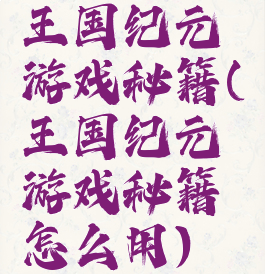 王国纪元
游戏秘籍(
王国纪元
游戏秘籍
怎么用)